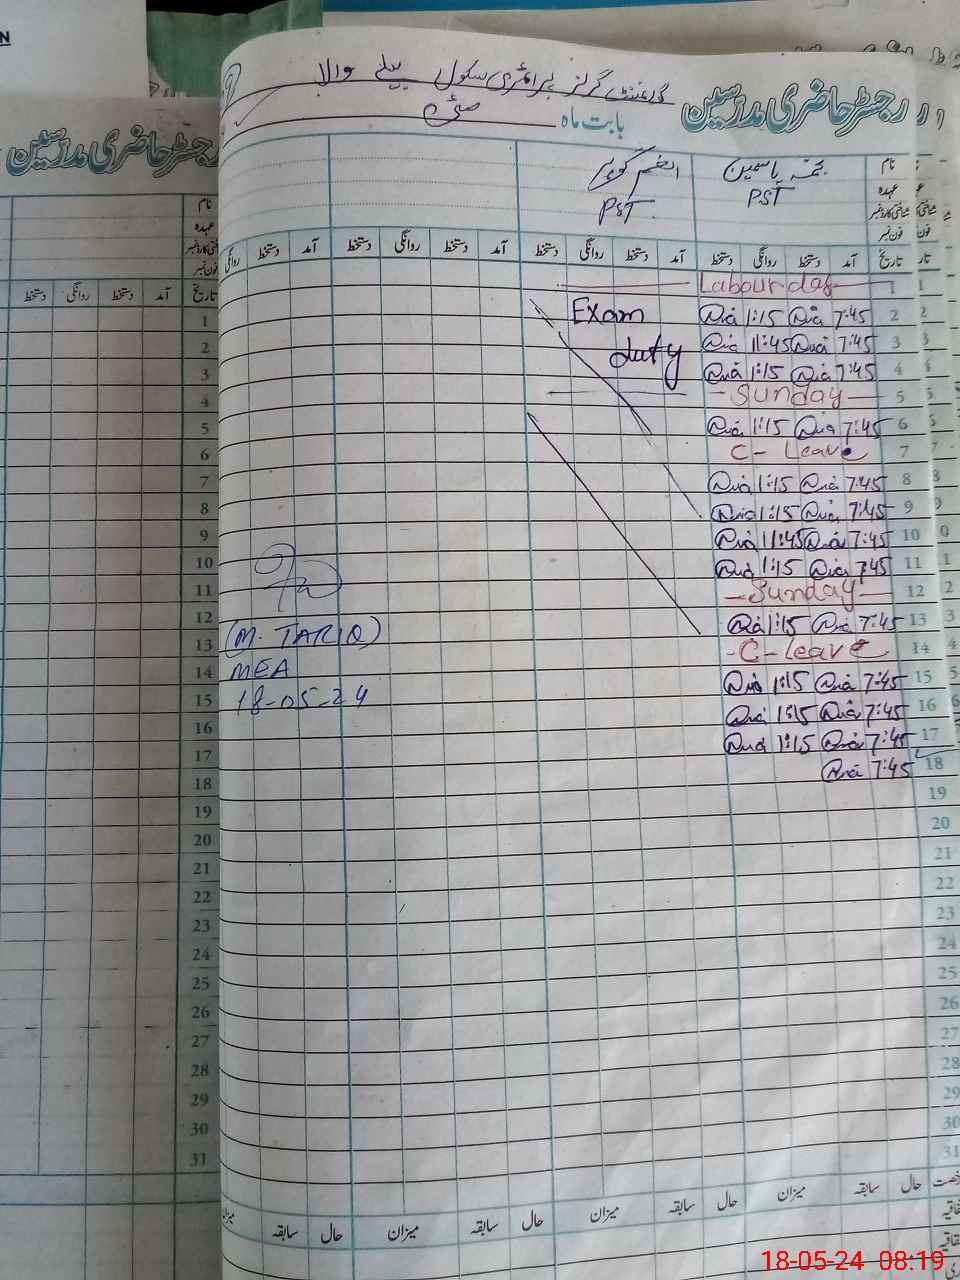 گورنمنٹ گرلز پرائمری سکول بیلے والا
رجسٹر حاضری مدرسین
بابت ماہ مئی
رجسٹر حاضری مدرسین
نام نجمہ یاسمین
عہدہ PST PST
شناختی کارڈ نمبر
فون نمبر
تاریخ آمد دستخط روانگی دستخط آمد دستخط روانگی دستخط آمد دستخط روانگی دستخط آمد دستخط روانگی
1 Labour day
2 7:45 1:15 Exam
3 7:45 11:45 duty
4 7:45 1:15
5 Sunday
6 7:45 1:15
7 C- Leave
8 7:45 1:15
9 7:45 1:15
10 7:45 11:45
11 7:45 1:15
12 Sunday
13 7:45 1:15
14 C- Leave
15 7:45 1:15
16 7:45 1:15
17 7:45 1:15
18 7:45
19
20
21
22
23
24
25
26
27
28
29
30
31
(M. TARIQ)
MEA
18-05-24
حال سابقہ میزان حال سابقہ میزان حال سابقہ میزان حال سابقہ میزان
نام
عہدہ
تاریخ آمد دستخط روانگی دستخط
1
2
3
4
5
6
7
8
9
10
11
12
13
14
15
16
17
18
19
20
21
22
23
24
25
26
27
28
29
30
31
18-05-24 08:19